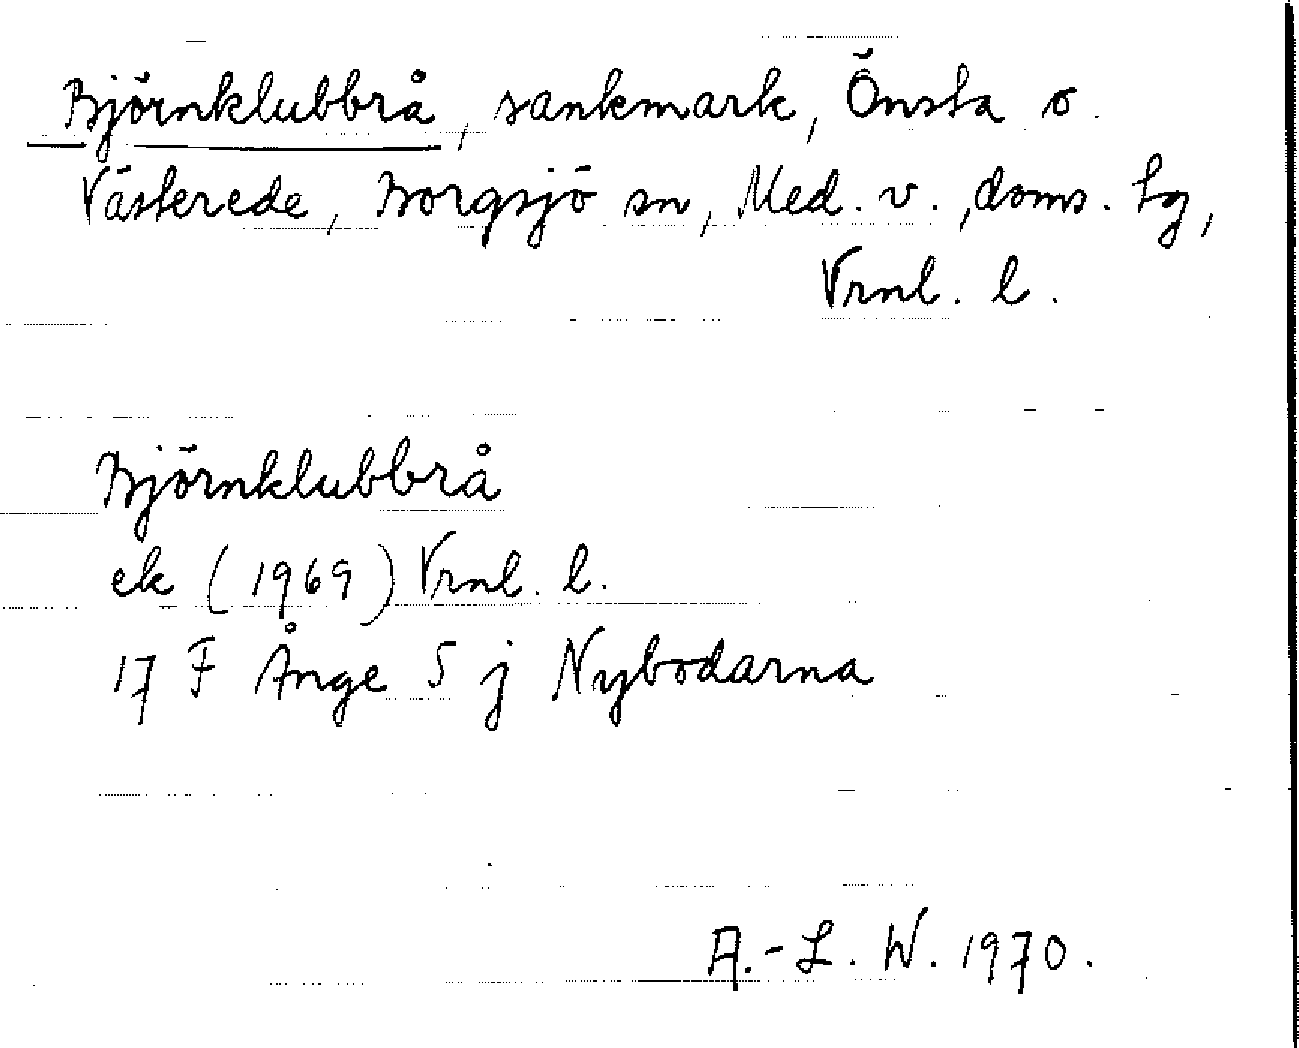 Björnklubbrå, sankmark, Önsta o.
Västerede, Borgsjö sn, Med. v., doms. hg,
Vrnl. l.
Björnklubbrå
ek (1969) Vrnl. l.
17 F Ånge S j Nybodarna
A.-L. W. 1970.